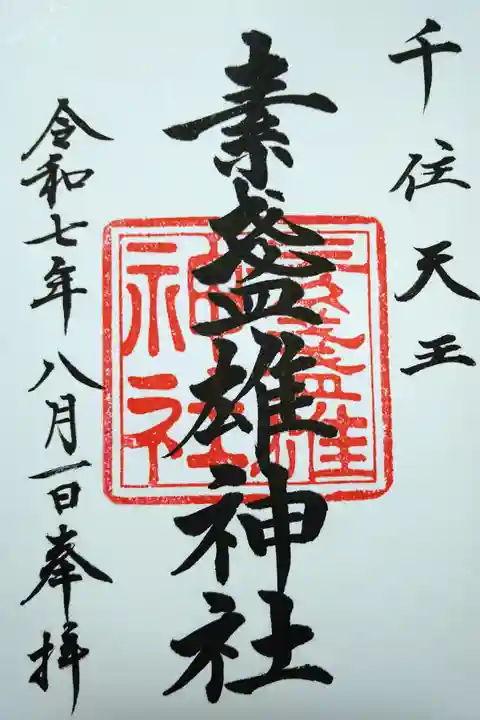 千住天王
素盞雄神社
令和七年八月一日奉拝
素盞雄
神社